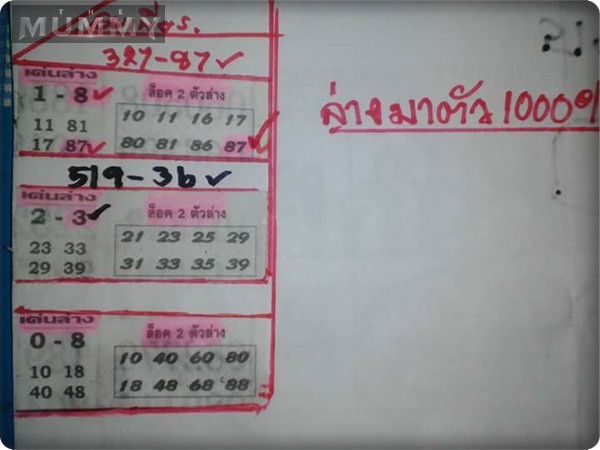 THE
MUMMY
327-87 ✓
เด่นล่าง
1 - 8 ✓
11 81
17 87 ✓
ล็อค 2 ตัวล่าง
10 11 16 17
80 81 86 87 ✓
ล่างมาตัว 1000%
519-36 ✓
เด่นล่าง
2 - 3 ✓
23 33
29 39
ล็อค 2 ตัวล่าง
21 23 25 29
31 33 35 39
เด่นล่าง
0 - 8
10 18
40 48
ล็อค 2 ตัวล่าง
10 40 60 80
18 48 68 88